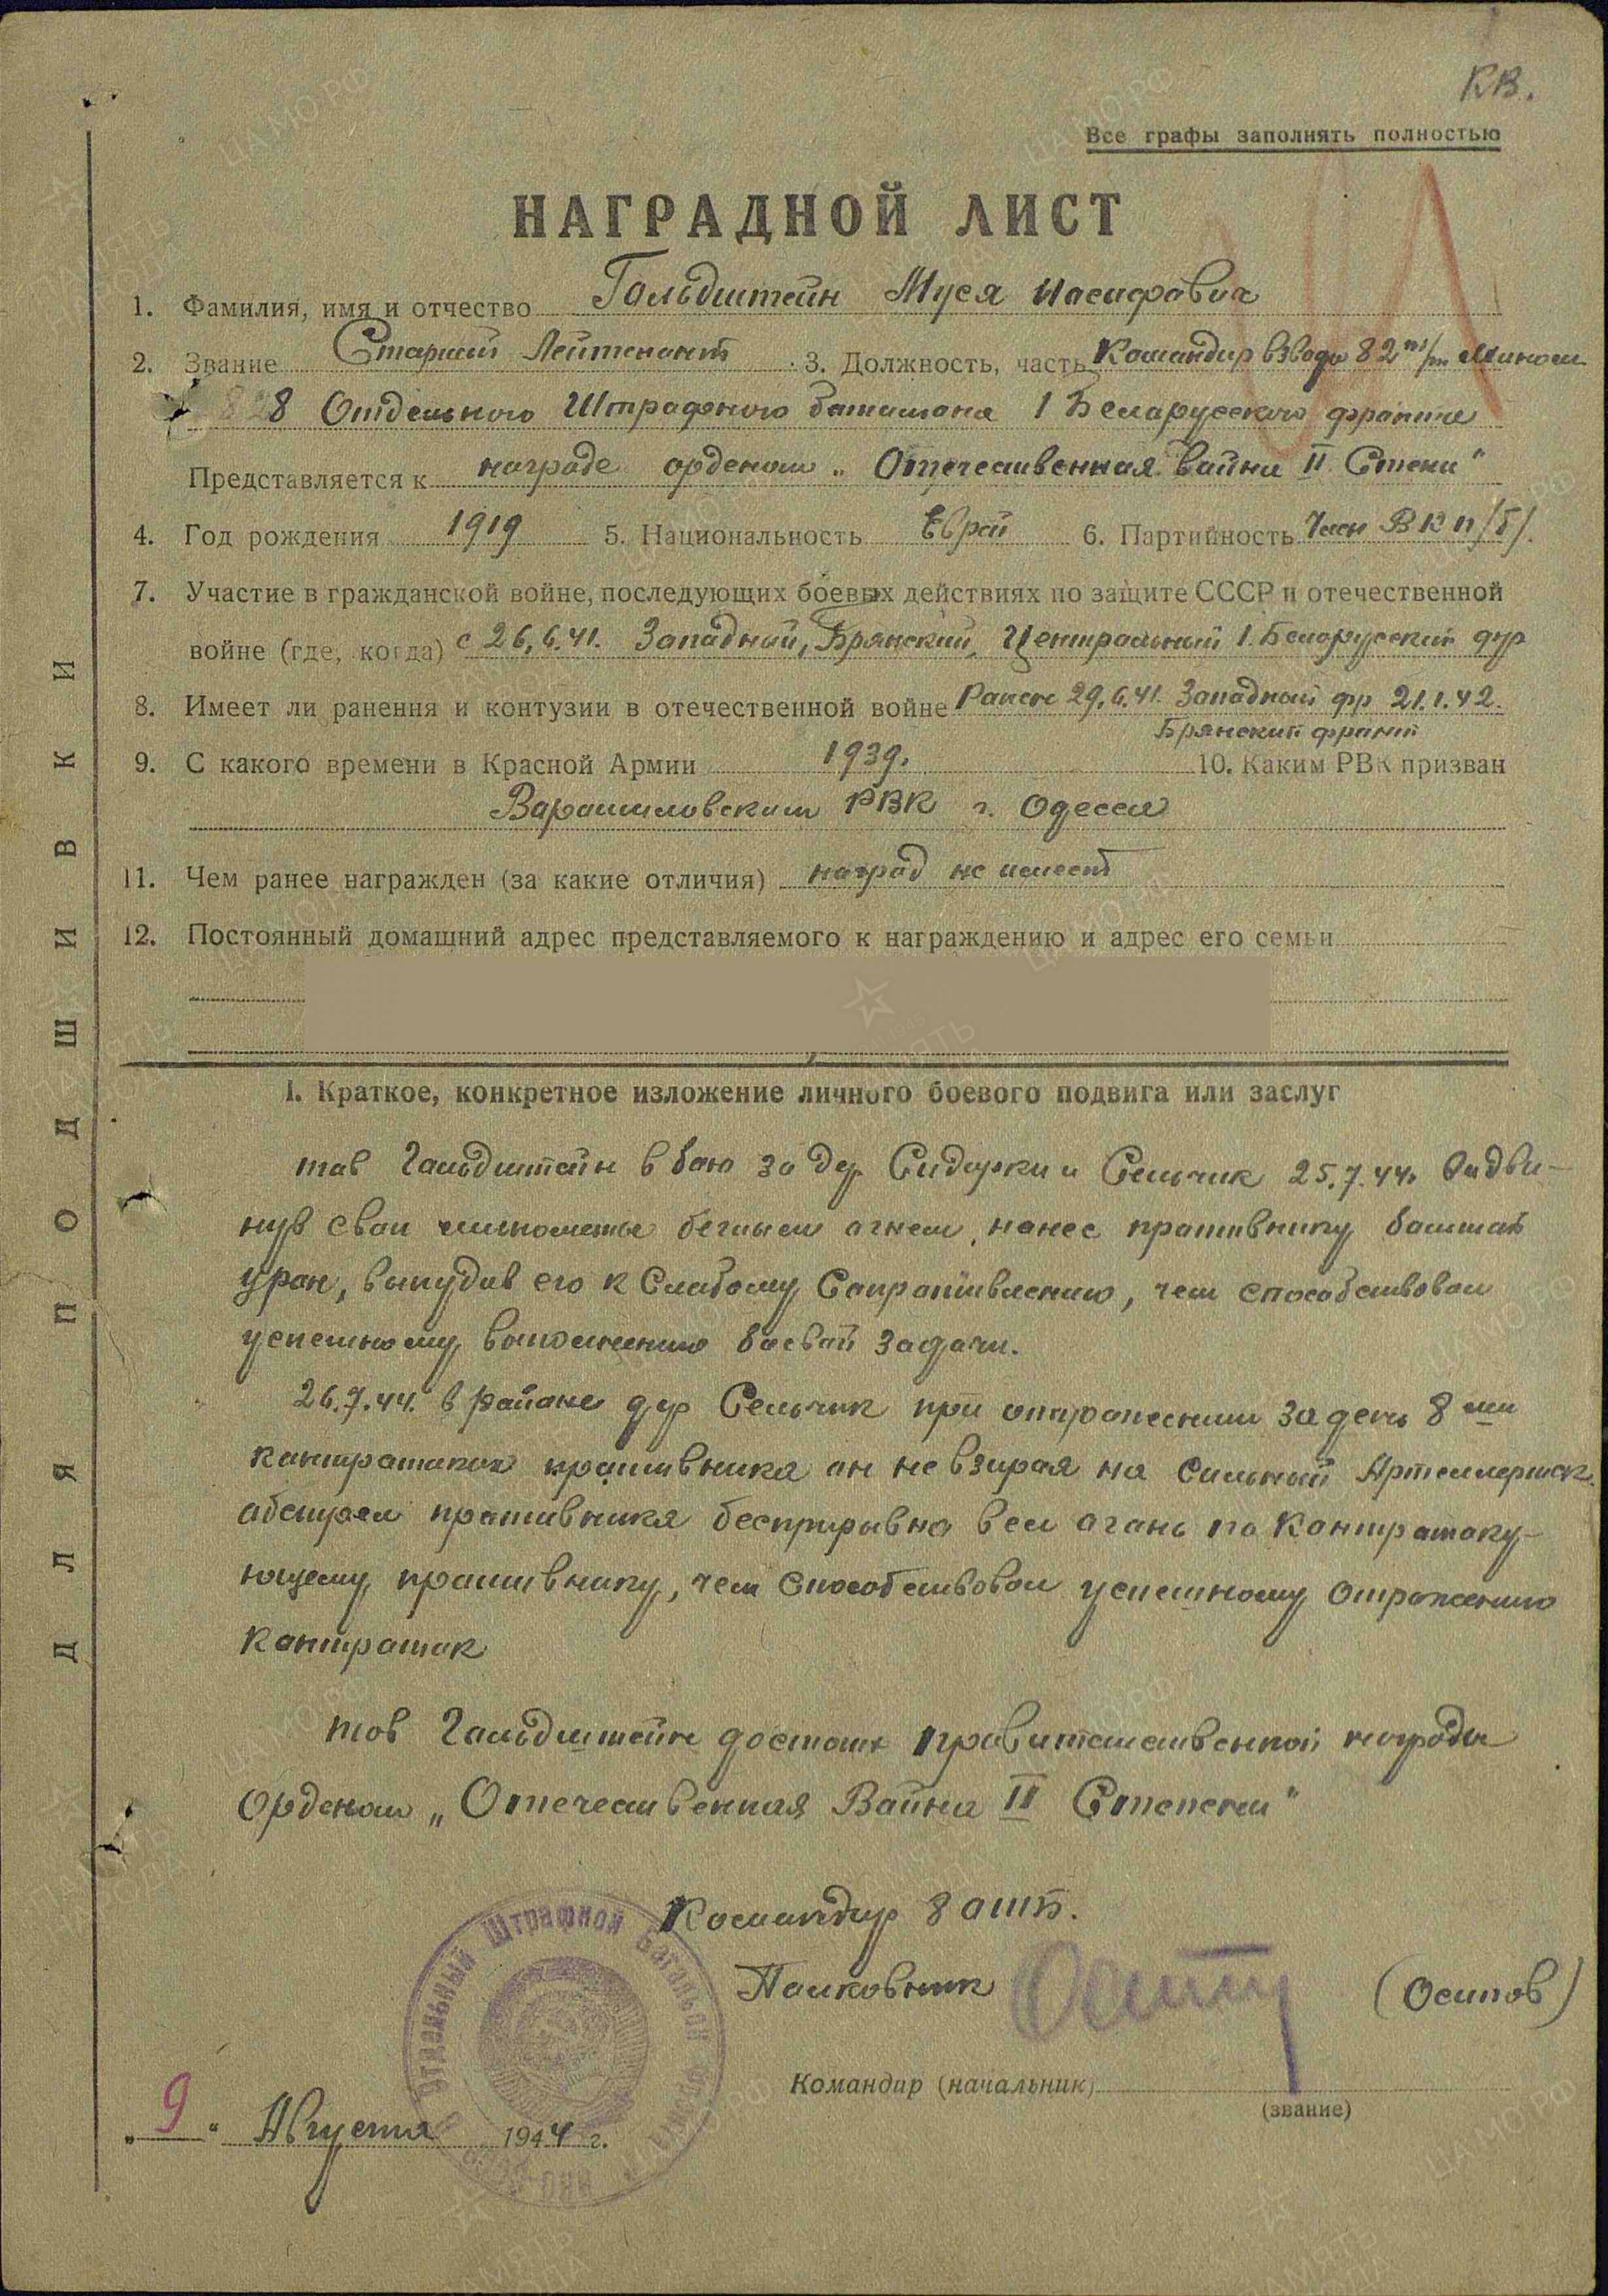 КВ.
Все графы заполнять полностью
НАГРАДНОЙ ЛИСТ
1. Фамилия, имя и отчество Гольдштейн Муся Иосифович
2. Звание Старший Лейтенант 3. Должность, часть Командир взвода 82 м/м Мином
8 Отдельного Штрафного батальона 1 Белорусского фронта
Представляется к награде орденом „Отечественная вайна II Степ"
4. Год рождения 1919 5. Национальность Еврей 6. Партийность Член ВКП/б/.
7. Участие в гражданской войне, последующих боевых действиях по защите СССР и отечественной
войне (где, когда) с 26.6.41. Западный, Брянский, Центральный 1. Белорусский фр
8. Имеет ли ранения и контузии в отечественной войне Ранен 29.6.41. Западный фр 21.1.42.
Брянский фронт
9. С какого времени в Красной Армии 1939. 10. Каким РВК призван
Варашиловским РВК г. Одесса
11. Чем ранее награжден (за какие отличия) наград не имеет
12. Постоянный домашний адрес представляемого к награждению и адрес его семьи
ДЛЯ ПОДШИВКИ
I. Краткое, конкретное изложение личного боевого подвига или заслуг
тов Гольдштейн в бою за дер Сидорки и Сельчик 25.7.44.
нув свои минометы беглым огнем, нанес противнику балшой
урон, вынудив его к Слабому Сапративлению, чем способствовал
успешному выполнению боевой задачи.
26.7.44. в районе дер Сельчик при отражении за день 8ми
контратаках противника он невзирая на сильный Артеллерийск.
абстрел противника беспрерывно вел агонь по Контратаку-
ющему противнику, чем способствовал успешному отражению
контратак
тов Гальдштейн достоин правительственной награды
Орденом „Отечественная Вайна II Степени"
Командир 8 ОШБ.
Палковник (Осипов)
Командир (начальник)
(звание)
„9" Августа 1944 г.
Отдельный Штрафной Батальон
НКО